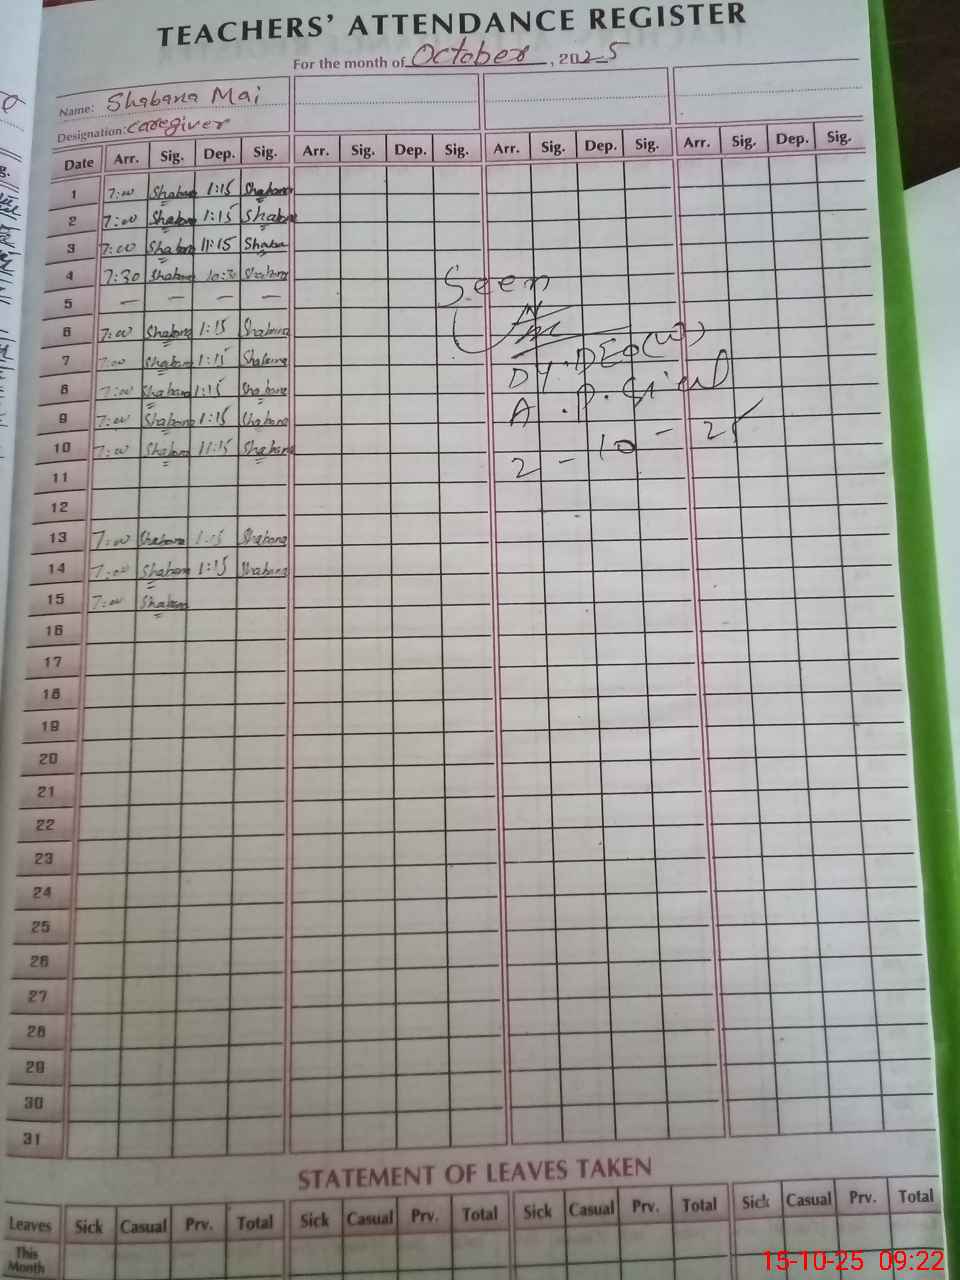 TEACHERS' ATTENDANCE REGISTER
For the month of October, 2025
Name: Shabana Mai
Designation: caregiver
Date Arr. Sig. Dep. Sig. Arr. Sig. Dep. Sig. Arr. Sig. Dep. Sig. Arr. Sig. Dep. Sig.
1 7:00 Shabana 1:15 Shabana
2 7:00 Shabana 1:15 Shabana
3 7:00 Shabana 11:15 Shabana
4 7:30 Shabana 10:30 Shabana
5 — — — —
6 7:00 Shabana 1:15 Shabana
7 7:00 Shabana 1:15 Shabana
8 7:00 Shabana 1:15 Shabana
9 7:00 Shabana 1:15 Shabana
10 7:00 Shabana 11:15 Shabana
11
12
13 7:00 Shabana 1:15 Shabana
14 7:00 Shabana 1:15 Shabana
15 7:00 Shabana
16
17
18
19
20
21
22
23
24
25
26
27
28
29
30
31
Seen
DY. DEO(W)
A.P.
2-10-25
STATEMENT OF LEAVES TAKEN
Leaves Sick Casual Prv. Total Sick Casual Prv. Total Sick Casual Prv. Total Sick Casual Prv. Total
This Month
15-10-25 09:22